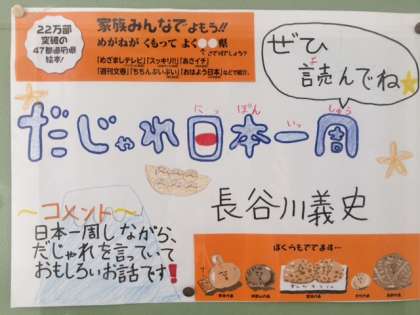 22万部
突破の
47都道府県
絵本!
家族みんなでよもう!!
めがねが くもって よく●●県
「めざましテレビ」「スッキリ!!」「あさイチ」
「週刊文春」「ちちんぷいぷい」「おはよう日本」などで紹介。
ぜひ
よ
読んでね★
にっ ぽん いっ しゅう
だじゃれ日本一周
長谷川義史
〜コメント〜
日本一周しながら、
だじゃれを言っていて
おもしろいお話です!
ぼくらもでてます…